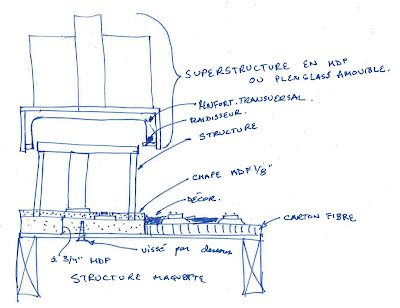 SUPERSTRUCTURE EN MDF
OU PLEXIGLASS AMOUIBLE.
RENFORT TRANSVERSAL.
RAIDISSEUR.
STRUCTURE
CHAPE MDF 1/8"
DÉCOR.
CARTON FIBRE
vissé par dessous
1 3/4" MDF
STRUCTURE MAQUETTE